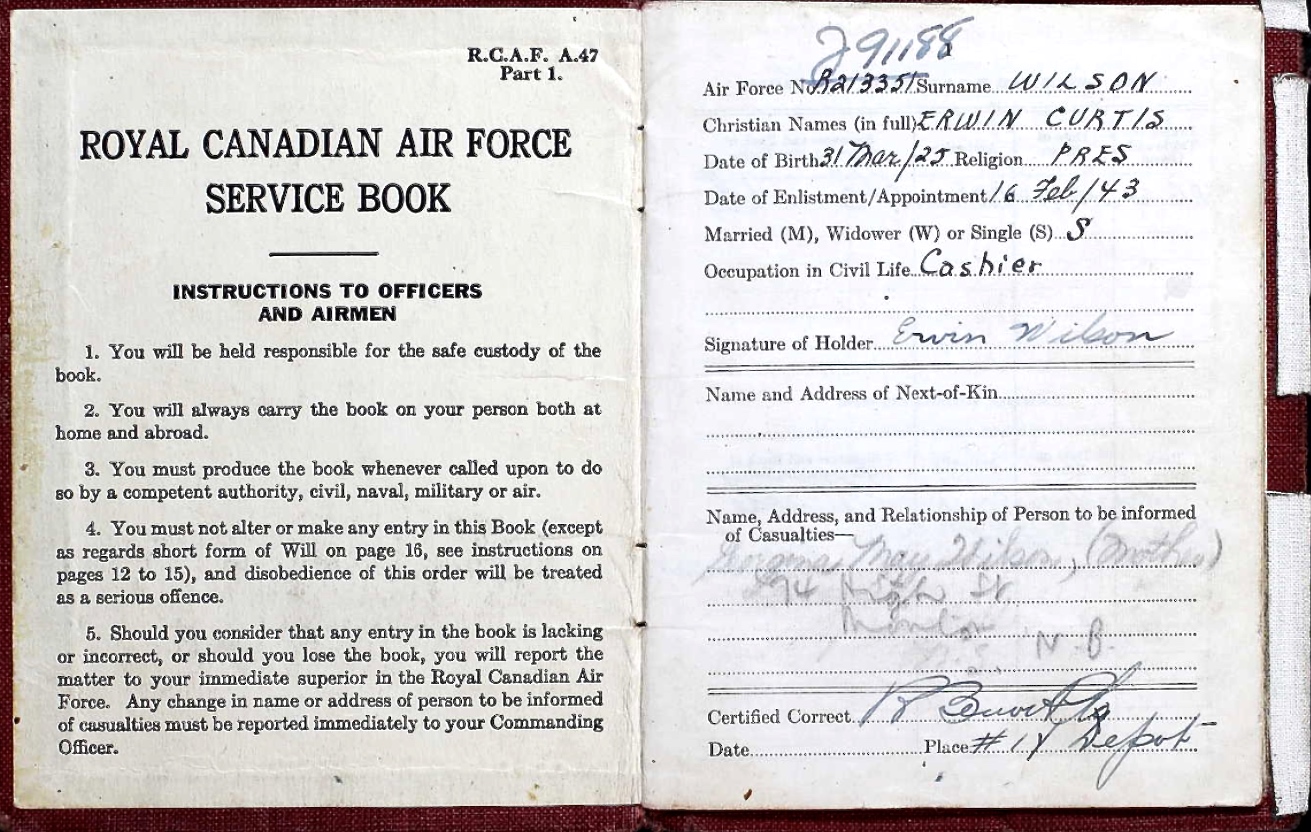 R.C.A.F. A.47
Part 1.
ROYAL CANADIAN AIR FORCE
SERVICE BOOK
INSTRUCTIONS TO OFFICERS
AND AIRMEN
1. You will be held responsible for the safe custody of the
book.
2. You will always carry the book on your person both at
home and abroad.
3. You must produce the book whenever called upon to do
so by a competent authority, civil, naval, military or air.
4. You must not alter or make any entry in this Book (except
as regards short form of Will on page 16, see instructions on
pages 12 to 15), and disobedience of this order will be treated
as a serious offence.
5. Should you consider that any entry in the book is lacking
or incorrect, or should you lose the book, you will report the
matter to your immediate superior in the Royal Canadian Air
Force. Any change in name or address of person to be informed
of casualties must be reported immediately to your Commanding
Officer.
J91188
Air Force No. R213351 Surname WILSON
Christian Names (in full) ERWIN CURTIS
Date of Birth 31 Mar/25 Religion PRES
Date of Enlistment/Appointment 16 Feb/43
Married (M), Widower (W) or Single (S) S
Occupation in Civil Life Cashier
Signature of Holder Erwin Wilson
Name and Address of Next-of-Kin
Name, Address, and Relationship of Person to be informed
of Casualties—
May Wilson, (Mother)
High St
Moncton
N.B.
Certified Correct
Date Place # Depot